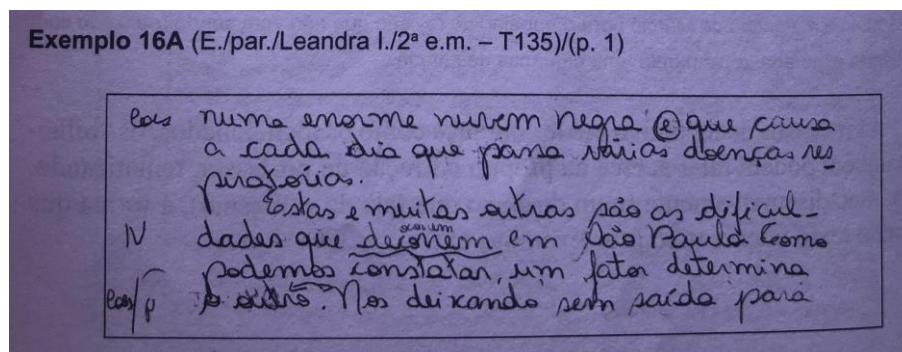 Exemplo 16A (E./par./Leandra I./2ª e.m. – T135)/(p. 1)
numa enorme nuvem negra e que causa
a cada dia que passa várias doenças res
piratórias.
Estas e muitas outras são as dificul-
ocorrem
IV dades que decorrem em São Paulo. Como
podemos constatar, um fator determina
p o outro. Nos deixando sem saída para